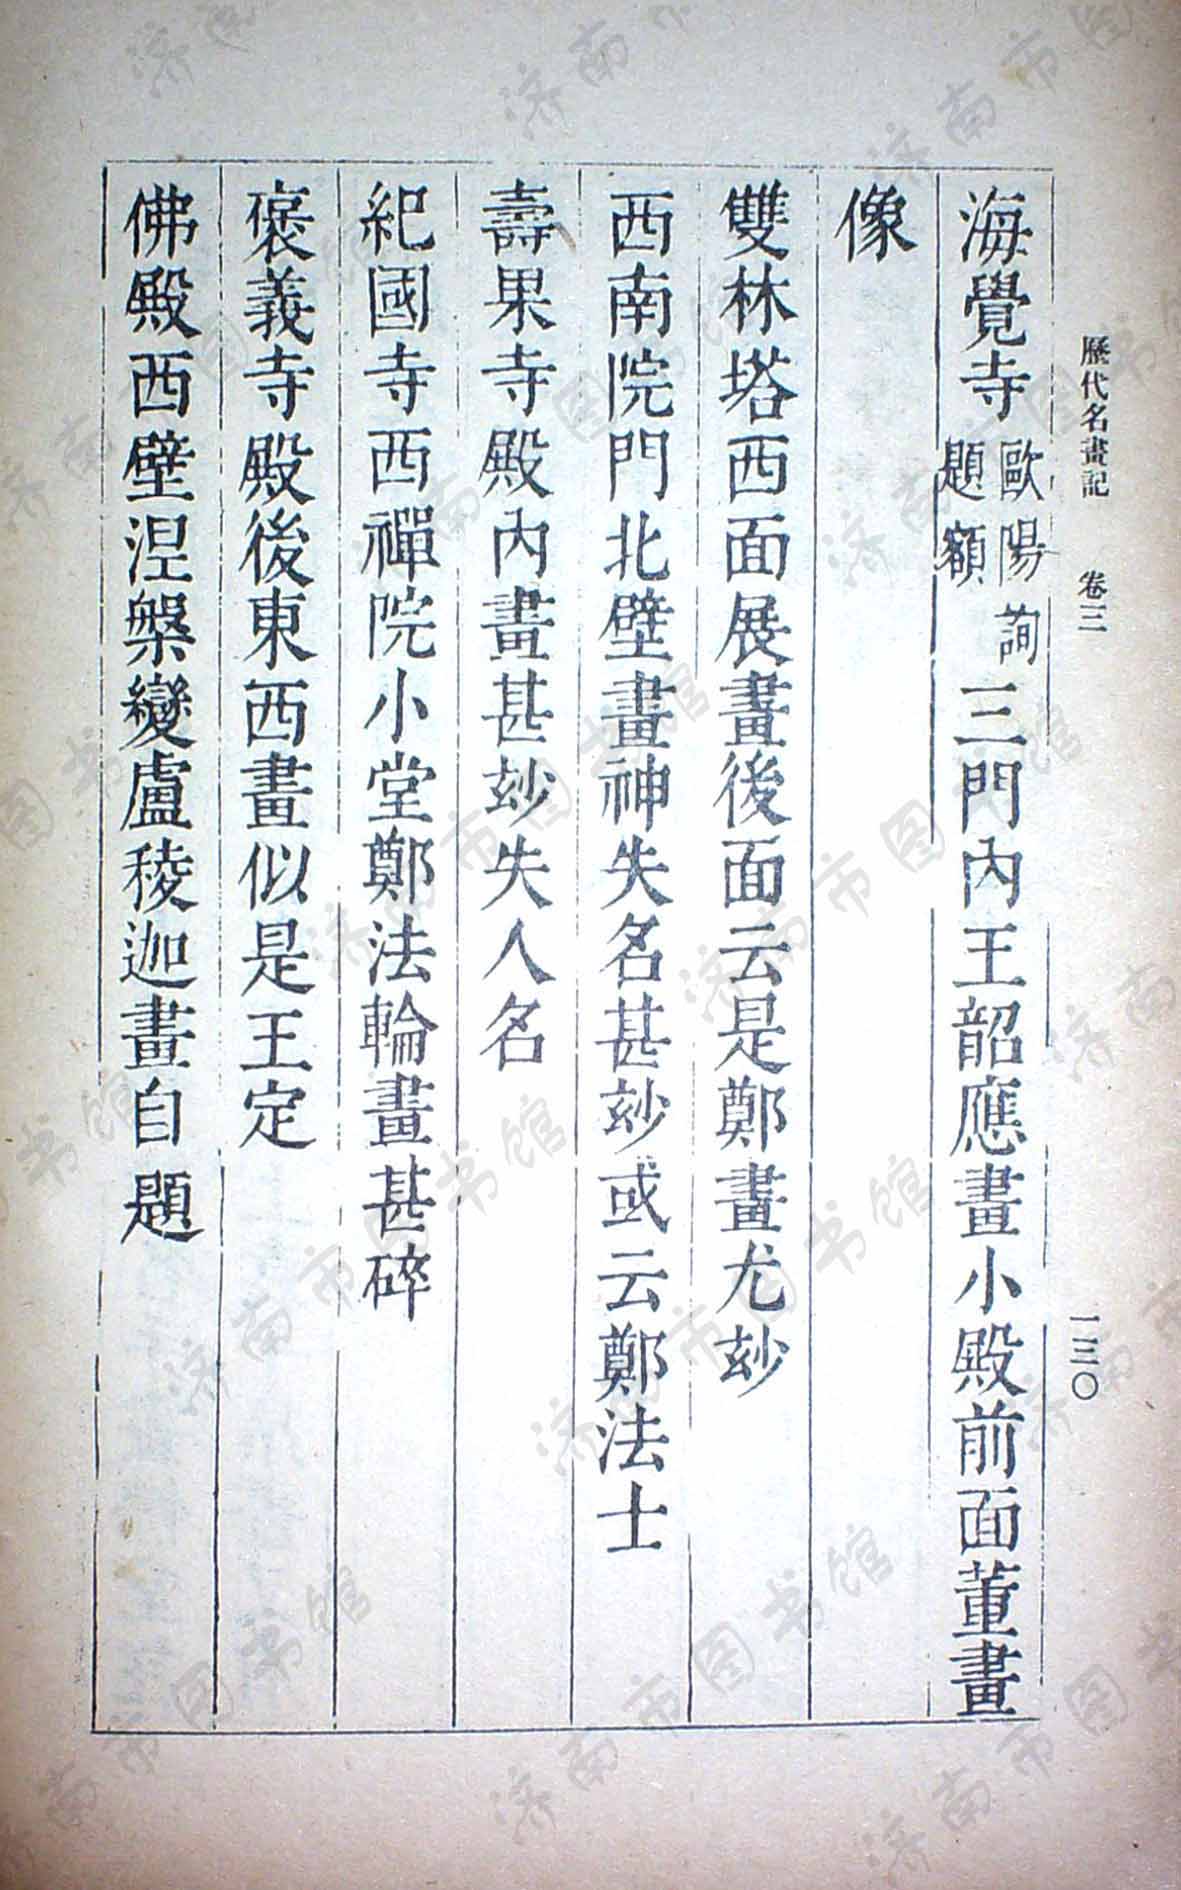 歷代名畫記 卷三 一三〇
海覺寺歐陽詢題額三門內王韶應畫小殿前面董畫
像
雙林塔西面展畫後面云是鄭畫尤玅
西南院門北壁畫神失名甚玅或云鄭法士
壽果寺殿內畫甚玅失人名
紀國寺西禪院小堂鄭法輪畫甚碎
褒義寺殿後東西畫似是王定
佛殿西壁涅槃變盧稜迦畫自題
济南市图书馆